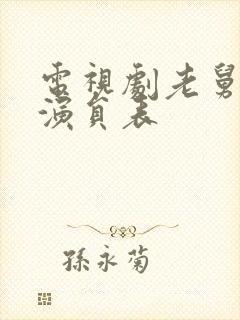 電視劇老舅
演員表
孫永菊